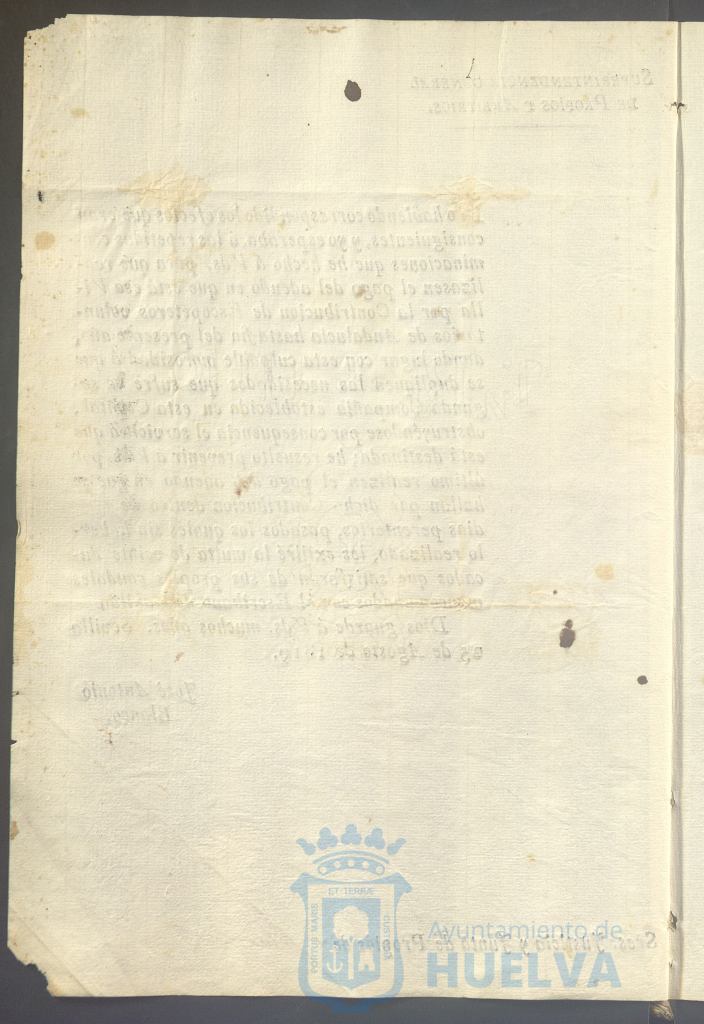 SUPERINTENDENCIA GENERAL
DE PROPIOS Y ARBITRIOS.
No habiendo correspondido los efectos que eran
consiguientes, y yo esperaba, á las repetidas con-
minaciones que he hecho á Vds. para que rea-
lizasen el pago del adeudo en que está esa Vi-
lla por la Contribucion de Escopeteros volun-
tarios de Andalucía hasta fin del presente año,
dando lugar con esta culpable morosidad á que
se dupliquen las necesidades que sufre la se-
gunda Compañía establecida en esta Capital,
obstruyéndose por consequencia el servicio á que
está destinada; he resuelto prevenir á Vds. por
último realizen el pago del adeudo en que se
hallan por dicha Contribucion dentro de
dias perentorios, pasados los quales sin haber-
lo realizado, les exîgiré la multa de veinte du-
cados que satisfarán de sus propios caudales
mancomunados con el Escribano
Dios guarde á Vds. muchos años. Sevilla
25 de Agosto de 1819.
José Antonio
Blanco.
Sres. Justicia y Junta de Propios de
PORTUS MARIS
ET TERRÆ
CUSTODIA
Ayuntamiento de
HUELVA